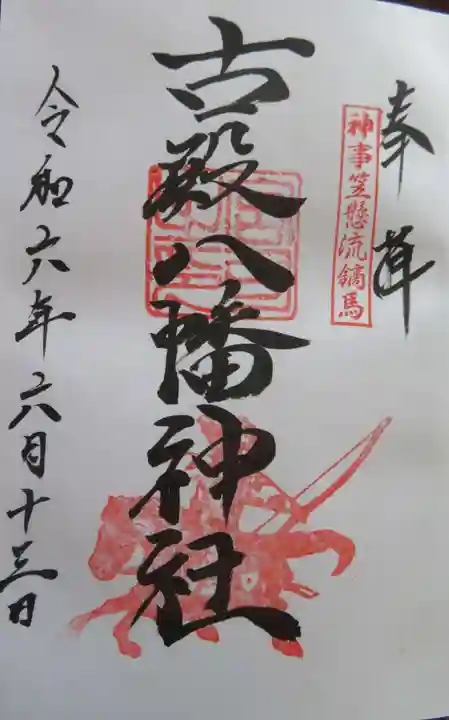 奉拝
神事笠懸流鏑馬
古殿八幡神社
令和六年六月十三日